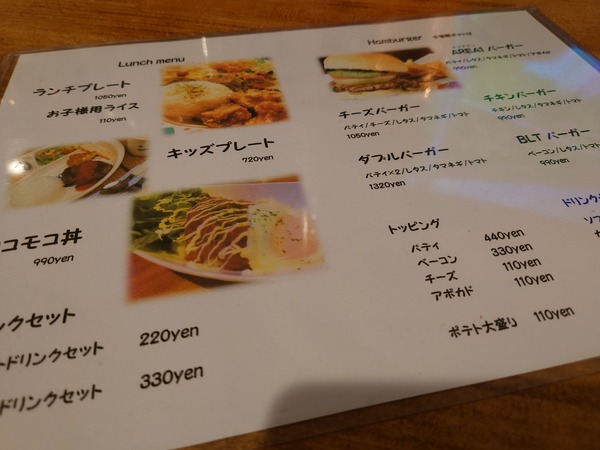 Lunch menu
ランチプレート
1050yen
お子様用ライス
110yen
キッズプレート
720yen
コモコ丼
990yen
ンクセット
220yen
トドリンクセット
330yen
ドリンクセット
Hamburger
AREA1 バーガー
パティ/レタス/タマネギ/トマト/アボカド
990yen
チーズバーガー
パティ/チーズ/レタス/タマネギ/トマト
1050yen
チキンバーガー
チキン/レタス/タマネギ/トマト
990yen
ダブルバーガー
パティ×2/レタス/タマネギ/トマト
1320yen
BLT バーガー
ベーコン/レタス/タマネギ/トマト
990yen
トッピング
パティ 440yen
ベーコン 330yen
チーズ 110yen
アボカド 110yen
ポテト大盛り 110yen
ドリンク
ソフ